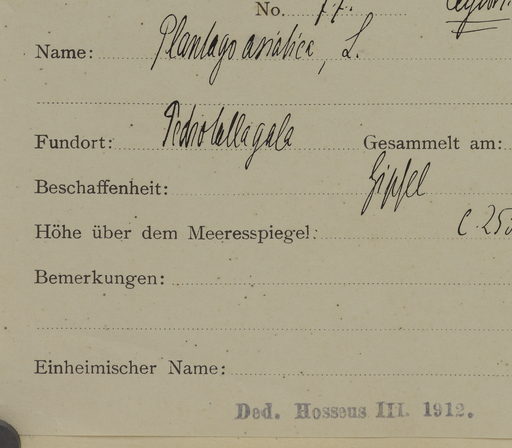 No. 77.
Name: Plantago asiatica, L.
Fundort: Pedrotallagala Gesammelt am:
Beschaffenheit: Gipfel
Höhe über dem Meeresspiegel: c. 25
Bemerkungen:
Einheimischer Name:
Ded. Hosseus III. 1912.